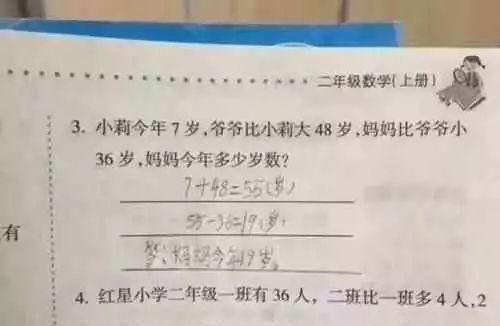 二年级数学(上册)
3. 小莉今年 7 岁,爷爷比小莉大 48 岁,妈妈比爷爷小
36 岁,妈妈今年多少岁数?
7+48=55(岁)
55-36=19(岁)
有
答:妈妈今年19岁。
4. 红星小学二年级一班有 36 人，二班比一班多 4 人,2